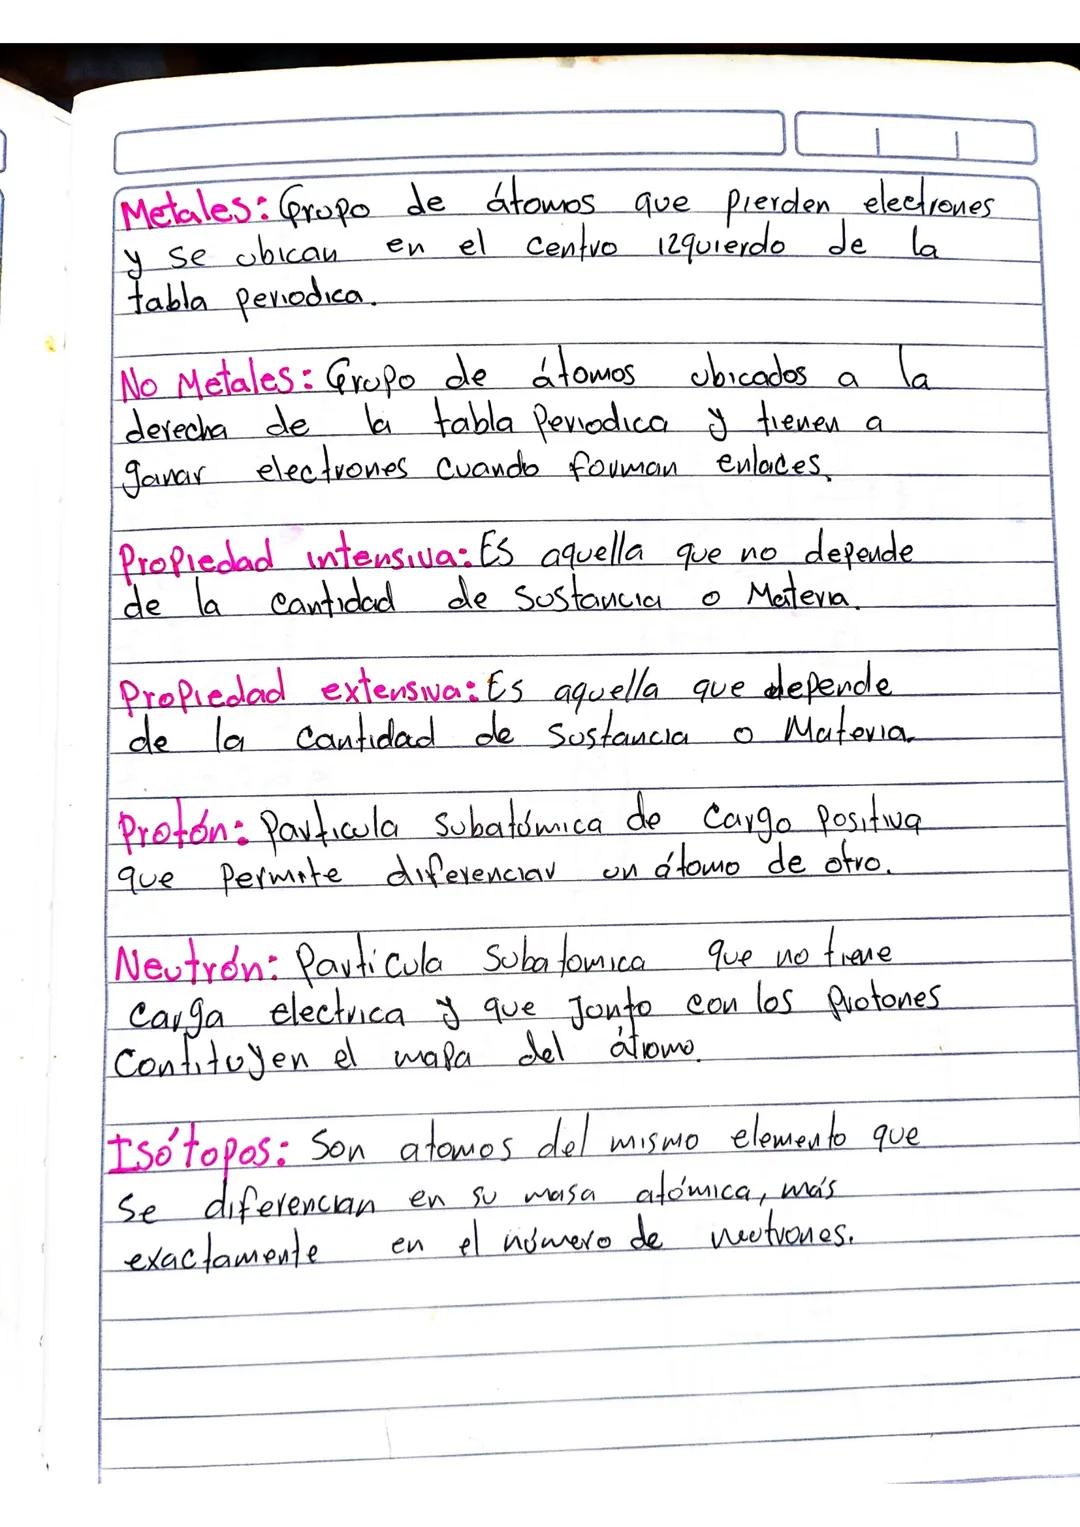 Metales: Grupo de átomos que pierden electrones
y se ubican en el centro izquierdo de la
tabla periodica.
No Metales: Grupo de átomos ubicados a la
derecha de la tabla Periodica y tienen a
ganar electrones cuando forman enlaces.
Propiedad intensiva: Es aquella que no depende
de la cantidad de sustancia o Materia.
Propiedad extensiva: Es aquella que depende
de la cantidad de sustancia o Materia.
Protón: Particula subatómica de cargo Positiva
que Permite diferenciar un átomo de otro.
Neutrón: Particula Subatomica que no tiene
carga electrica y que Junto con los Protones
Contituyen el mapa del átomo.
Isótopos: Son atomos del mismo elemento que
se diferencian en su masa atómica, más
exactamente en el número de neutrones.